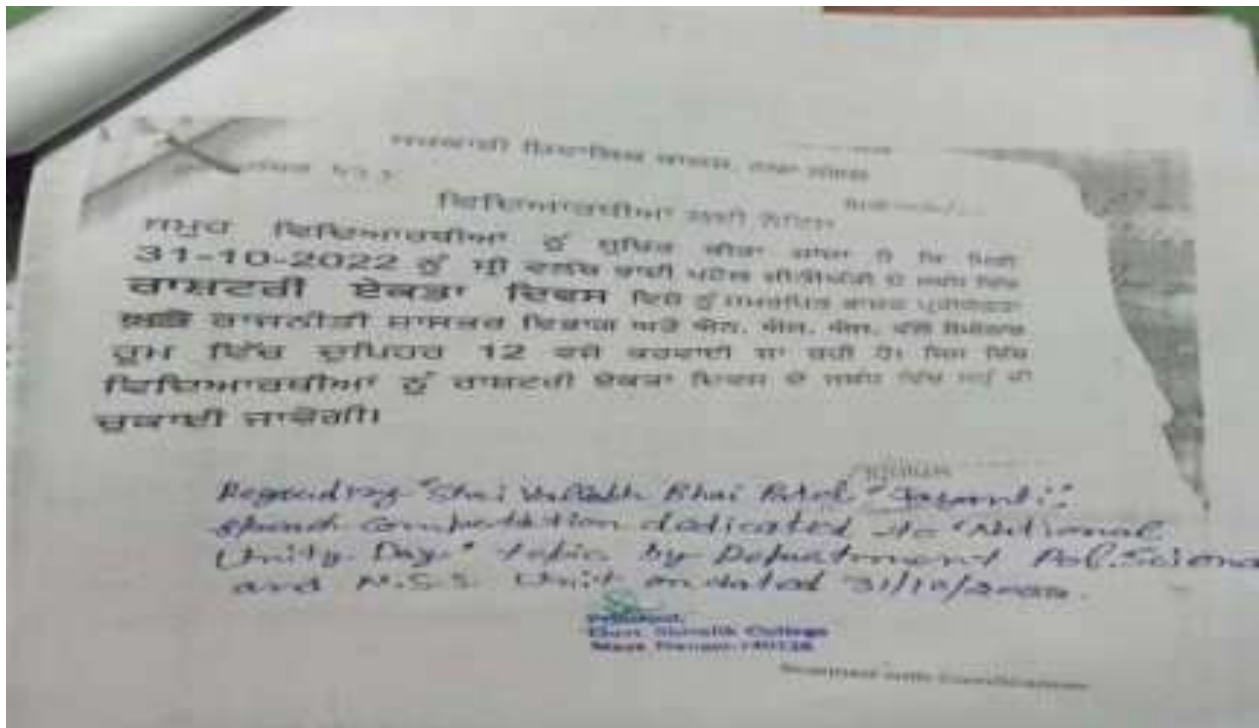 ਸਰਕਾਰੀ ਸ਼ਿਵਾਲਿਕ ਕਾਲਜ, ਨਯਾ ਨੰਗਲ
ਵਿਦਿਆਰਥੀਆਂ ਲਈ ਨੋਟਿਸ
ਸਮੂਹ ਵਿਦਿਆਰਥੀਆਂ ਨੂੰ ਸੂਚਿਤ ਕੀਤਾ ਜਾਂਦਾ ਹੈ ਕਿ ਮਿਤੀ
31-10-2022 ਨੂੰ ਸ਼੍ਰੀ ਵਲਭ ਭਾਈ ਪਟੇਲ ਜੀ ਦੇ ਸਬੰਧ ਵਿੱਚ
ਰਾਸ਼ਟਰੀ ਏਕਤਾ ਦਿਵਸ ਵਿਸ਼ੇ ਨੂੰ ਸਮਰਪਿਤ ਭਾਸ਼ਣ ਪ੍ਰਤੀਯੋਗਤਾ
ਰਾਜਨੀਤੀ ਸ਼ਾਸਤਰ ਵਿਭਾਗ ਅਤੇ ਐਨ. ਐਸ. ਐਸ. ਵਲੋਂ
ਰੂਮ ਵਿੱਚ ਦੁਪਿਹਰ 12 ਵਜੇ ਕਰਵਾਈ ਜਾ ਰਹੀ ਹੈ। ਜਿਸ ਵਿੱਚ
ਵਿਦਿਆਰਥੀਆਂ ਨੂੰ ਰਾਸ਼ਟਰੀ ਏਕਤਾ ਦਿਵਸ ਦੇ ਸਬੰਧ ਵਿੱਚ ਸਹੁੰ ਵੀ
ਚੁਕਾਈ ਜਾਵੇਗੀ।
Regarding "Shri Vallabh Bhai Patel" Jayanti"
competition dedicated to "National
Unity Day" topic by Department Pol. Science
and N.S.S. Unit on dated 31/10/
Principal,
Govt. Shivalik College
Naya Nangal-140126
Scanned with CamScanner